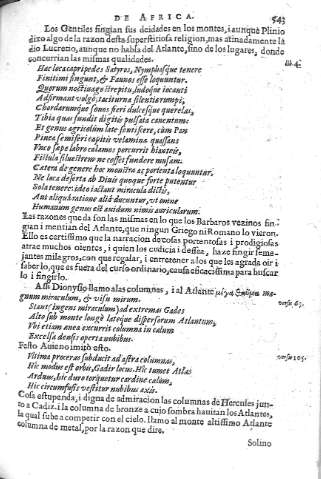 DE AFRICA. 543
Los Gentiles fingian sus deidades en los montes, i aunque Plinio
dixo algo de la razon desta superstiosa religion, mas atinadamente la
dio Lucretio, aunque no habla del Atlante, sino de los lugares, donde
concurrian las mismas qualidades. lib. 4.
Hac loca capripedes Satyros, Nymphasque tenere
Finitimi fingunt, & Faunos esse loquuntur.
Quorum noctivago strepitu, ludoque iocanti
Adfirmant volgò taciturna silentia rumpi,
Chordarumque sonos fieri dulcesque querelas,
Tibia quas fundit digitis pulsata canentum:
Et genus agricolûm late sentiscere, cùm Pan
Pinea semiferi capitis velamina quassans
Vnco sæpe labro calamos percurrit hianteis,
Fistula silvestrem ne cesset fundere musam.
Catera de genere hoc monstra ac portenta loquuntur.
Ne loca deserta ab Divis quoque forte putentur
Sola tenere: ideo iactant miracula dictis,
Aut aliqua ratione alia ducuntur, vt omne
Humanum genus est avidum nimis auricularum.
Las razones que da son las mismas en lo que los Barbaros vezinos fin-
gian i mentian del Atlante, que ningun Griego ni Romano lo vieron.
Ello es certissimo que la narracion de cosas portentosas i prodigiosas
atrae muchos oientes, i quien los cudicia i dessea, haze fingir seme-
jantes milagros, con que regalar, i entretener a los que les agrada oir i
saberlo, que es fuera del curso ordinario, causa eficacissima para buscar
lo i fingirlo.
Assi Dionysio llamo alas colunnes, i al Atlante μέγα θαῦμα ma-
gnum miraculum, & visu mirum. verso 65.
Stant (ingens miraculum) ad extremas Gades
Alto sub monte longè lateque dispersorum Atlantum,
Vbi etiam anea excurris columna in calum
Excelsa densis operta nubibus.
Festo Auieno imitò esto. verso 105.
Vltima proceras subducit ad astra columnas,
Hic modus est orbis, Gadir locus. Hic tumet Atlas
Arduus, hic duro torquetur cardine cælum,
Hic circumfusis vestitur nubibus axis.
Cosa estupenda, i digna de admiracion las colunnas de Hercules jun-
to a Cadiz, i la columna de bronze a cujo sombra hauitan los Atlantes,
la qual sube a competir con el cielo. llamo al monte altissimo Atlante
columna de metal, por la razon que dire.
Solino